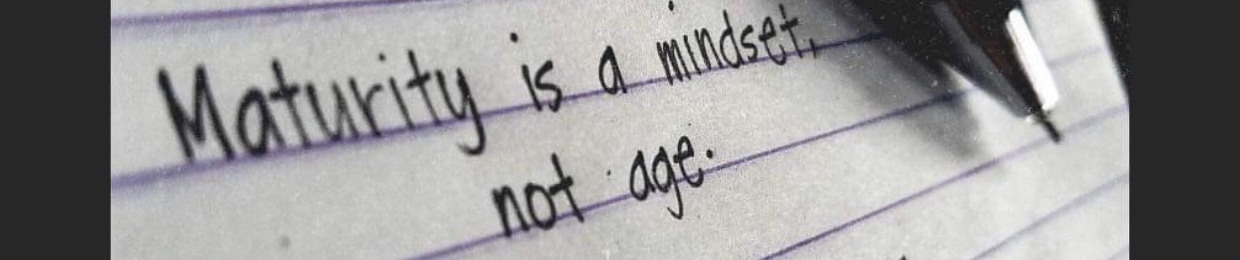 Maturity is a mindset,
not age.